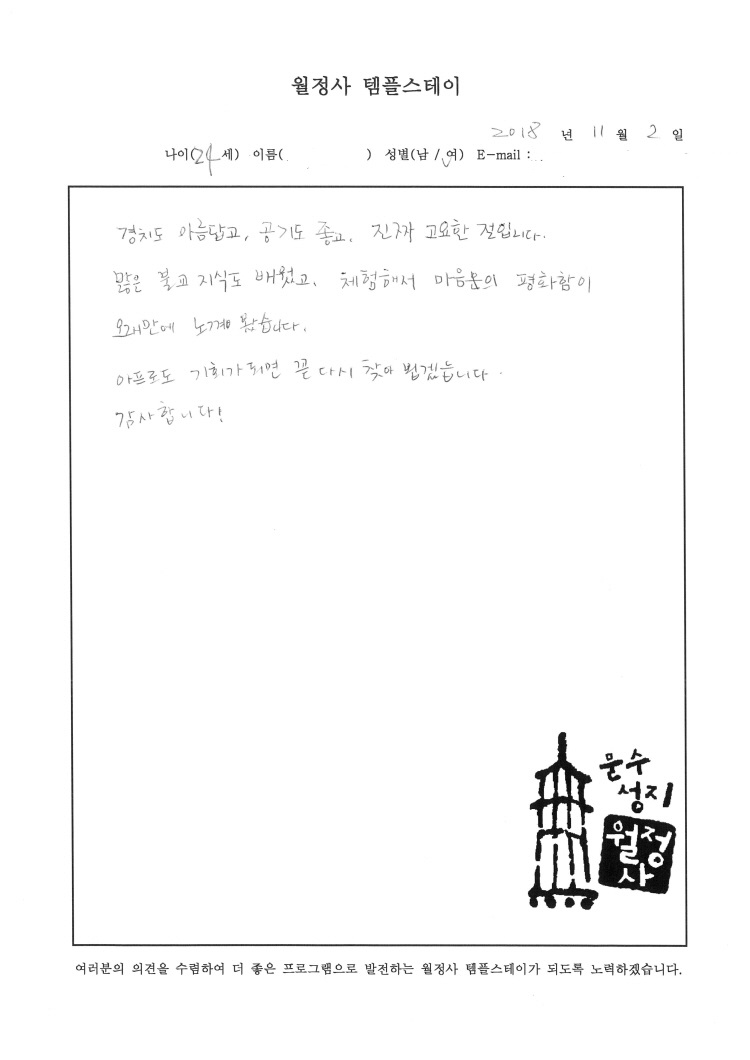 월정사 템플스테이
2018 년 11 월 2 일
나이(24 세) 이름( ) 성별(남 / 여) E-mail :
경치도 아름답고, 공기도 좋고, 진짜 고요한 절입니다.
많은 불교 지식도 배웠고, 체험해서 마음문의 평화함이
오래만에 느껴 봤습니다.
아프로도 기회가 되면 꼭 다시 찾아 뵙겠습니다.
감사합니다!
문수
성지
월정
사
여러분의 의견을 수렴하여 더 좋은 프로그램으로 발전하는 월정사 템플스테이가 되도록 노력하겠습니다.